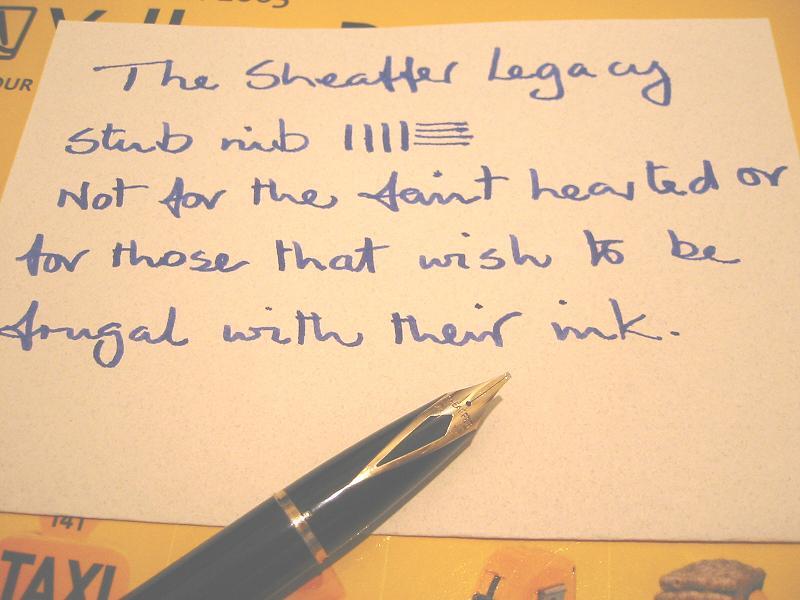 2003
OUR
The Sheaffer Legacy
Stub nib
Not for the faint hearted or
for those that wish to be
frugal with their ink.
SHEAFFER
141
TAXI